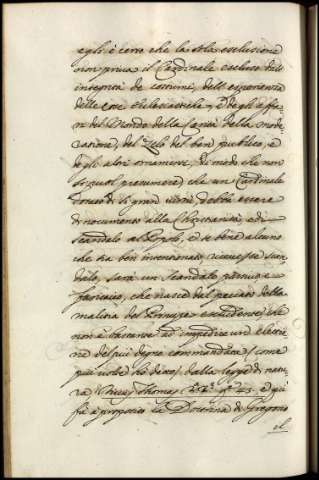 egli è certo che la sola esclusione
non priva il Cardinale escluso dell'
integrità de costumi, dell'esperienza
delle cose Ecclesiastiche, e degli affa-
ri del Mondo della Santità della mode-
razione, del Zelo del ben publico, e
degli altri ornamenti, di modo che non
si puol presumere che un Cardinale
dotato di sì gran virtù debba essere
di nocumento alla Christianità, e di
scandalo al Popolo, e se bene alcuno
che ha ben intenzionato ricevesse scan-
dalo, sarà un scandalo
che nasce dal peccato della
malizia del Prencipe escludente, che
non è bastante ad impedire un'elezio-
ne del più degno commandata /come
più volte ho detto/ dalla legge di natu-
ra Thomas e quì
fà à proposito la Dottrina di Gregorio
el